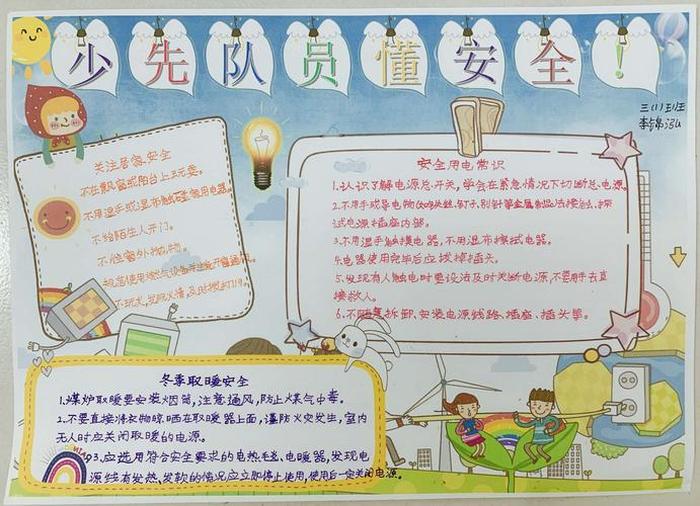 少先队员懂安全!
三(1)班
李锦泓
关注居家安全
不在飘窗或阳台上玩耍。
不用湿手或湿布触碰家用电器。
不给陌生人开门。
不往窗外抛物。
规范使用燃气设备
不玩火,发现火情,及时拨打119。
安全用电常识
1.认识了解电源总开关,学会在紧急情况下切断总电源。
2.不用手或导电物(如铁丝、钉子、别针等金属制品)去接触、探
试电源插座内部。
3.不用湿手触摸电器,不用湿布擦拭电器。
4.电器使用完毕后应拔掉插头。
5.发现有人触电时要设法及时关断电源,不要用手去直
接救人。
6.不随意拆卸、安装电源线路、插座、插头等。
冬季取暖安全
1.煤炉取暖要安装烟筒,注意通风,防止煤气中毒。
2.不要直接将衣物晾晒在取暖器上面,谨防火灾发生,室内
无人时应关闭取暖的电源。
3.应选用符合安全要求的电热毯、电暖器,发现电
源线有发热、发软的情况应立即停止使用,使用后一定关闭电源。